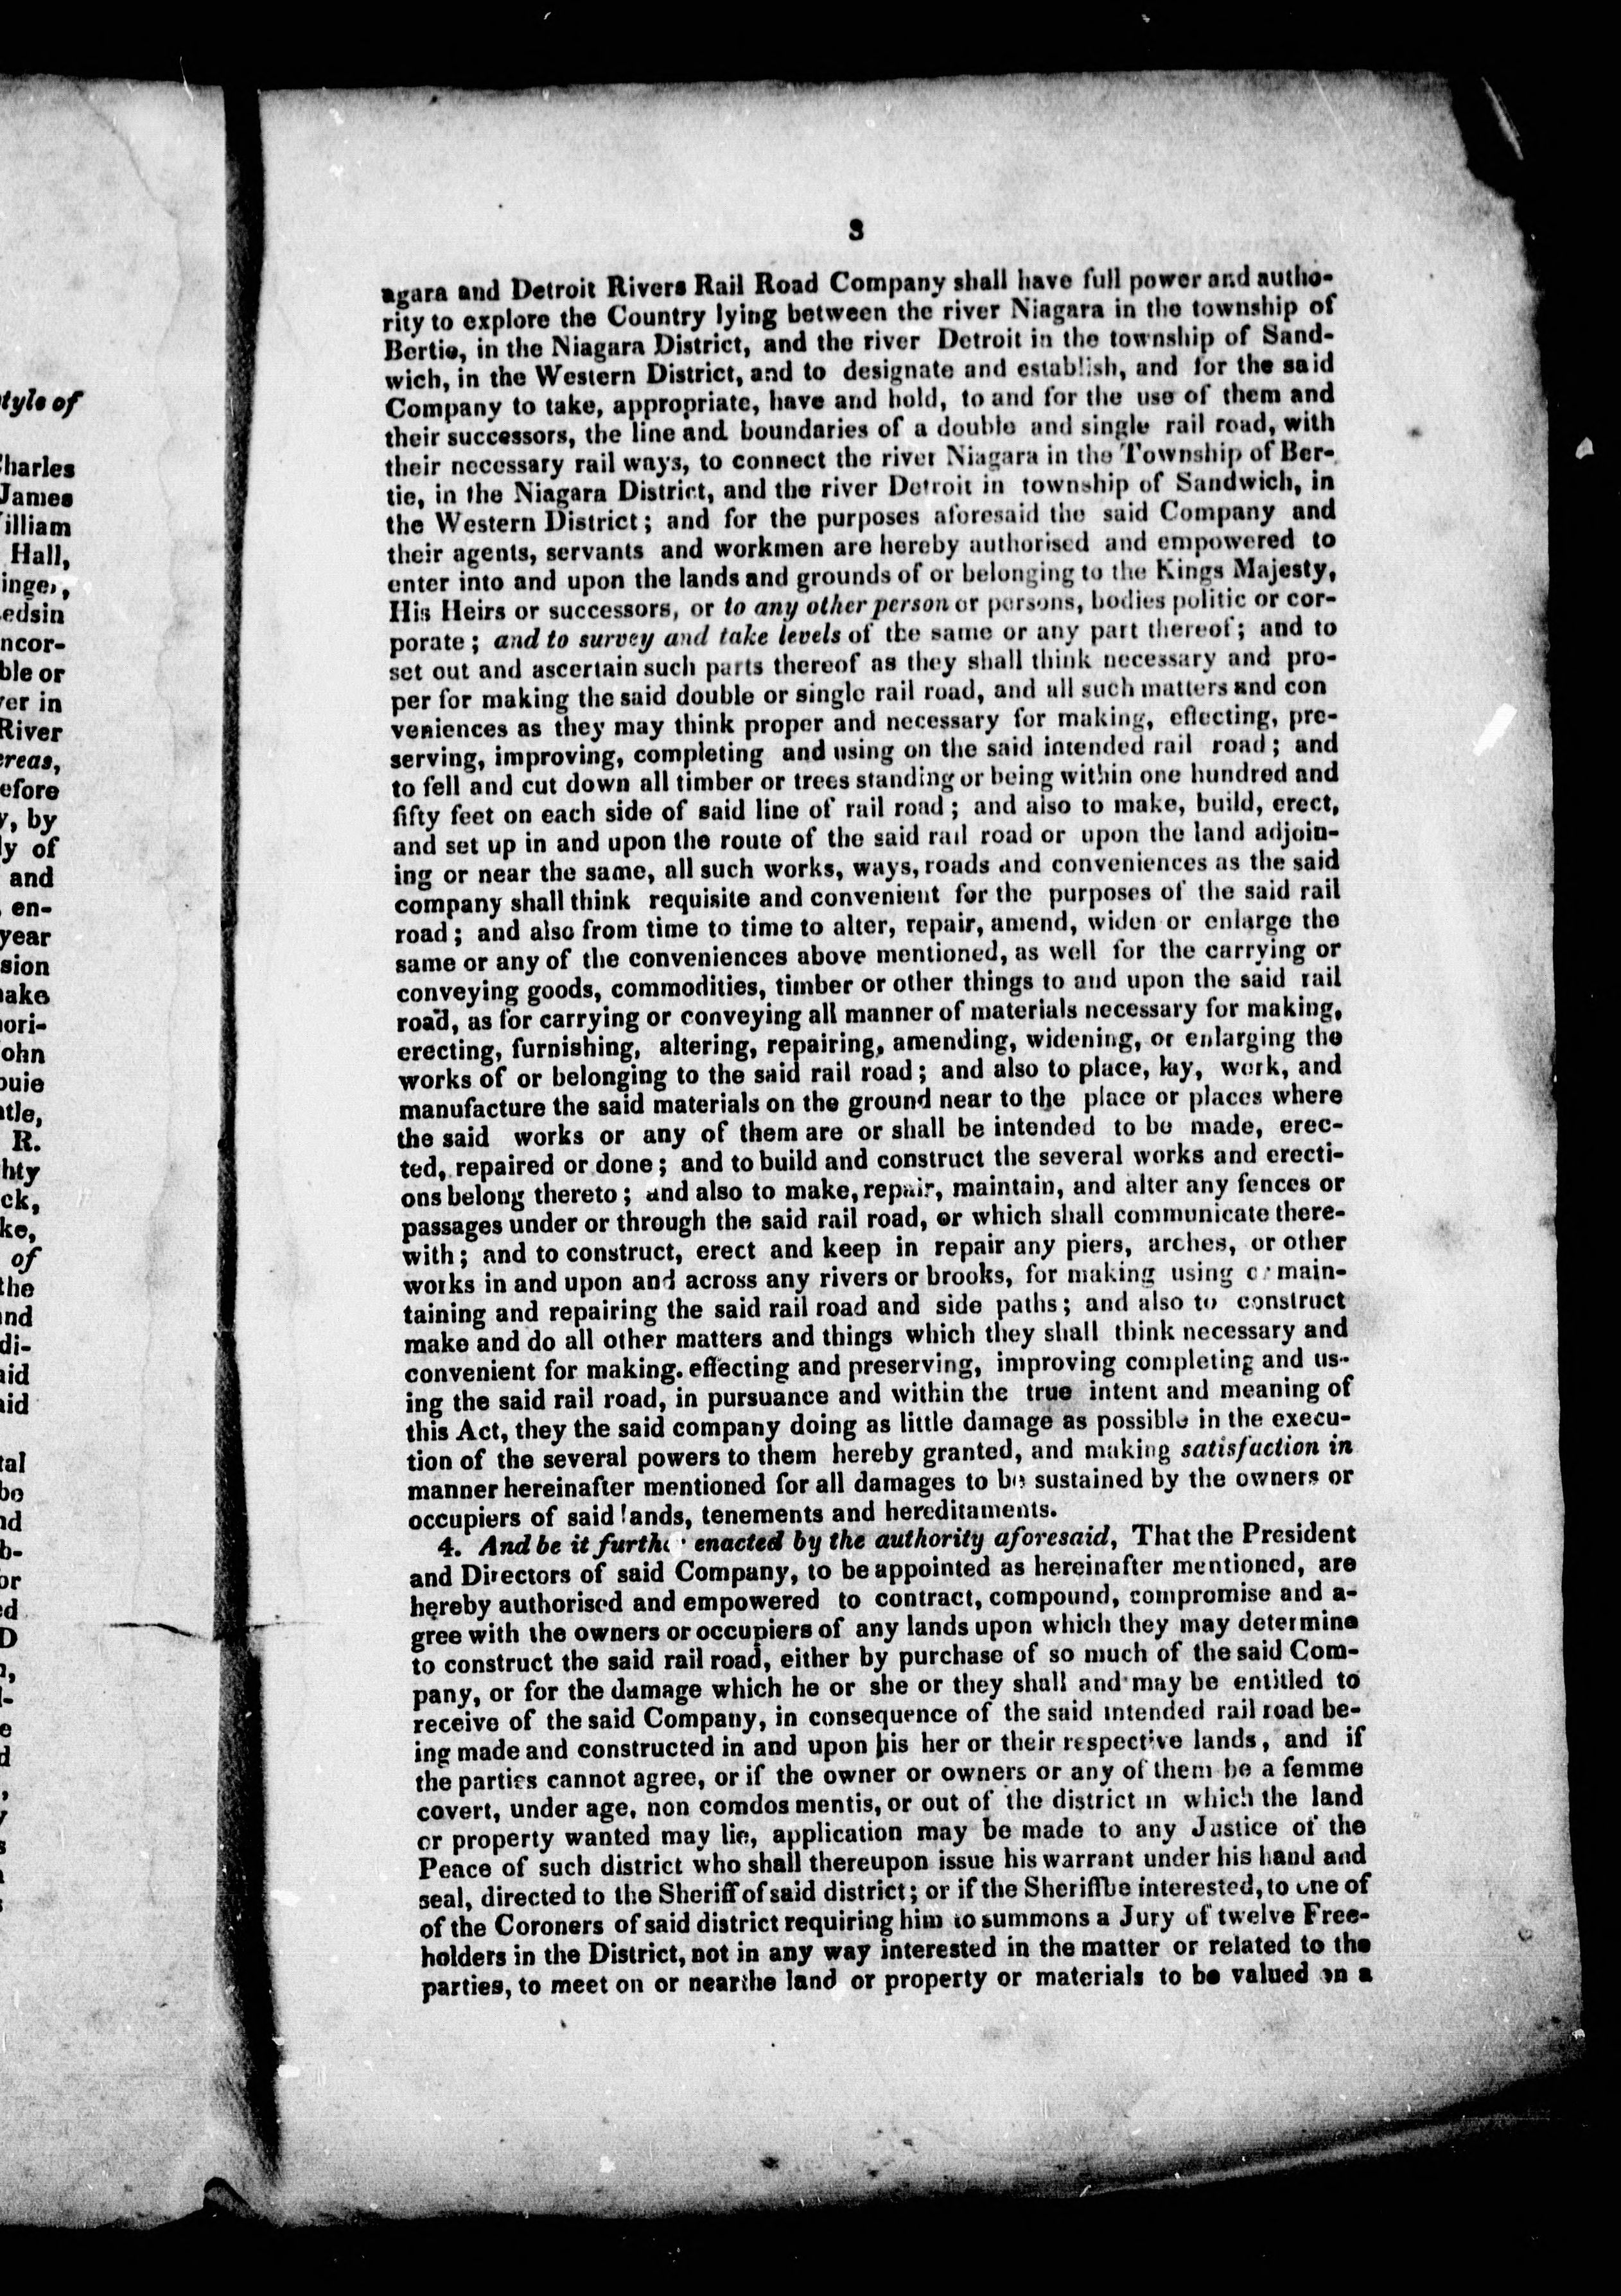 tyle of
harles
James
illiam
Hall,
inge,,
edsin
ncor-
ble or
er in
River
reas,
efore
y, by
ly of
and
en-
year
sion
ake
ori-
ohn
ouie
tle,
R.
hty
ck,
ke,
of
the
nd
di-
aid
aid
tal
be
nd
b-
or
ed
D
3
agara and Detroit Rivers Rail Road Company shall have full power and autho-
rity to explore the Country lying between the river Niagara in the township of
Bertie, in the Niagara District, and the river Detroit in the township of Sand-
wich, in the Western District, and to designate and establish, and for the said
Company to take, appropriate, have and hold, to and for the use of them and
their successors, the line and boundaries of a double and single rail road, with
their necessary rail ways, to connect the river Niagara in the Township of Ber-
tie, in the Niagara District, and the river Detroit in township of Sandwich, in
the Western District; and for the purposes aforesaid the said Company and
their agents, servants and workmen are hereby authorised and empowered to
enter into and upon the lands and grounds of or belonging to the Kings Majesty,
His Heirs or successors, or to any other person or persons, bodies politic or cor-
porate; and to survey and take levels of the same or any part thereof; and to
set out and ascertain such parts thereof as they shall think necessary and pro-
per for making the said double or single rail road, and all such matters and con
veniences as they may think proper and necessary for making, effecting, pre-
serving, improving, completing and using on the said intended rail road; and
to fell and cut down all timber or trees standing or being within one hundred and
fifty feet on each side of said line of rail road; and also to make, build, erect,
and set up in and upon the route of the said rail road or upon the land adjoin-
ing or near the same, all such works, ways, roads and conveniences as the said
company shall think requisite and convenient for the purposes of the said rail
road; and also from time to time to alter, repair, amend, widen or enlarge the
same or any of the conveniences above mentioned, as well for the carrying or
conveying goods, commodities, timber or other things to and upon the said rail
road, as for carrying or conveying all manner of materials necessary for making,
erecting, furnishing, altering, repairing, amending, widening, or enlarging the
works of or belonging to the said rail road; and also to place, lay, work, and
manufacture the said materials on the ground near to the place or places where
the said works or any of them are or shall be intended to be made, erec-
ted, repaired or done; and to build and construct the several works and erecti-
ons belong thereto; and also to make, repair, maintain, and alter any fences or
passages under or through the said rail road, or which shall communicate there-
with; and to construct, erect and keep in repair any piers, arches, or other
works in and upon and across any rivers or brooks, for making using or main-
taining and repairing the said rail road and side paths; and also to construct
make and do all other matters and things which they shall think necessary and
convenient for making. effecting and preserving, improving completing and us-
ing the said rail road, in pursuance and within the true intent and meaning of
this Act, they the said company doing as little damage as possible in the execu-
tion of the several powers to them hereby granted, and making satisfaction in
manner hereinafter mentioned for all damages to be sustained by the owners or
occupiers of said lands, tenements and hereditaments.
4. And be it further enacted by the authority aforesaid, That the President
and Directors of said Company, to be appointed as hereinafter mentioned, are
hereby authorised and empowered to contract, compound, compromise and a-
gree with the owners or occupiers of any lands upon which they may determine
to construct the said rail road, either by purchase of so much of the said Com-
pany, or for the damage which he or she or they shall and may be entitled to
receive of the said Company, in consequence of the said intended rail road be-
ing made and constructed in and upon his her or their respective lands, and if
the parties cannot agree, or if the owner or owners or any of them be a femme
covert, under age, non comdos mentis, or out of the district in which the land
or property wanted may lie, application may be made to any Justice of the
Peace of such district who shall thereupon issue his warrant under his hand and
seal, directed to the Sheriff of said district; or if the Sheriff be interested, to one of
of the Coroners of said district requiring him to summons a Jury of twelve Free-
holders in the District, not in any way interested in the matter or related to the
parties, to meet on or near the land or property or materials to be valued on a